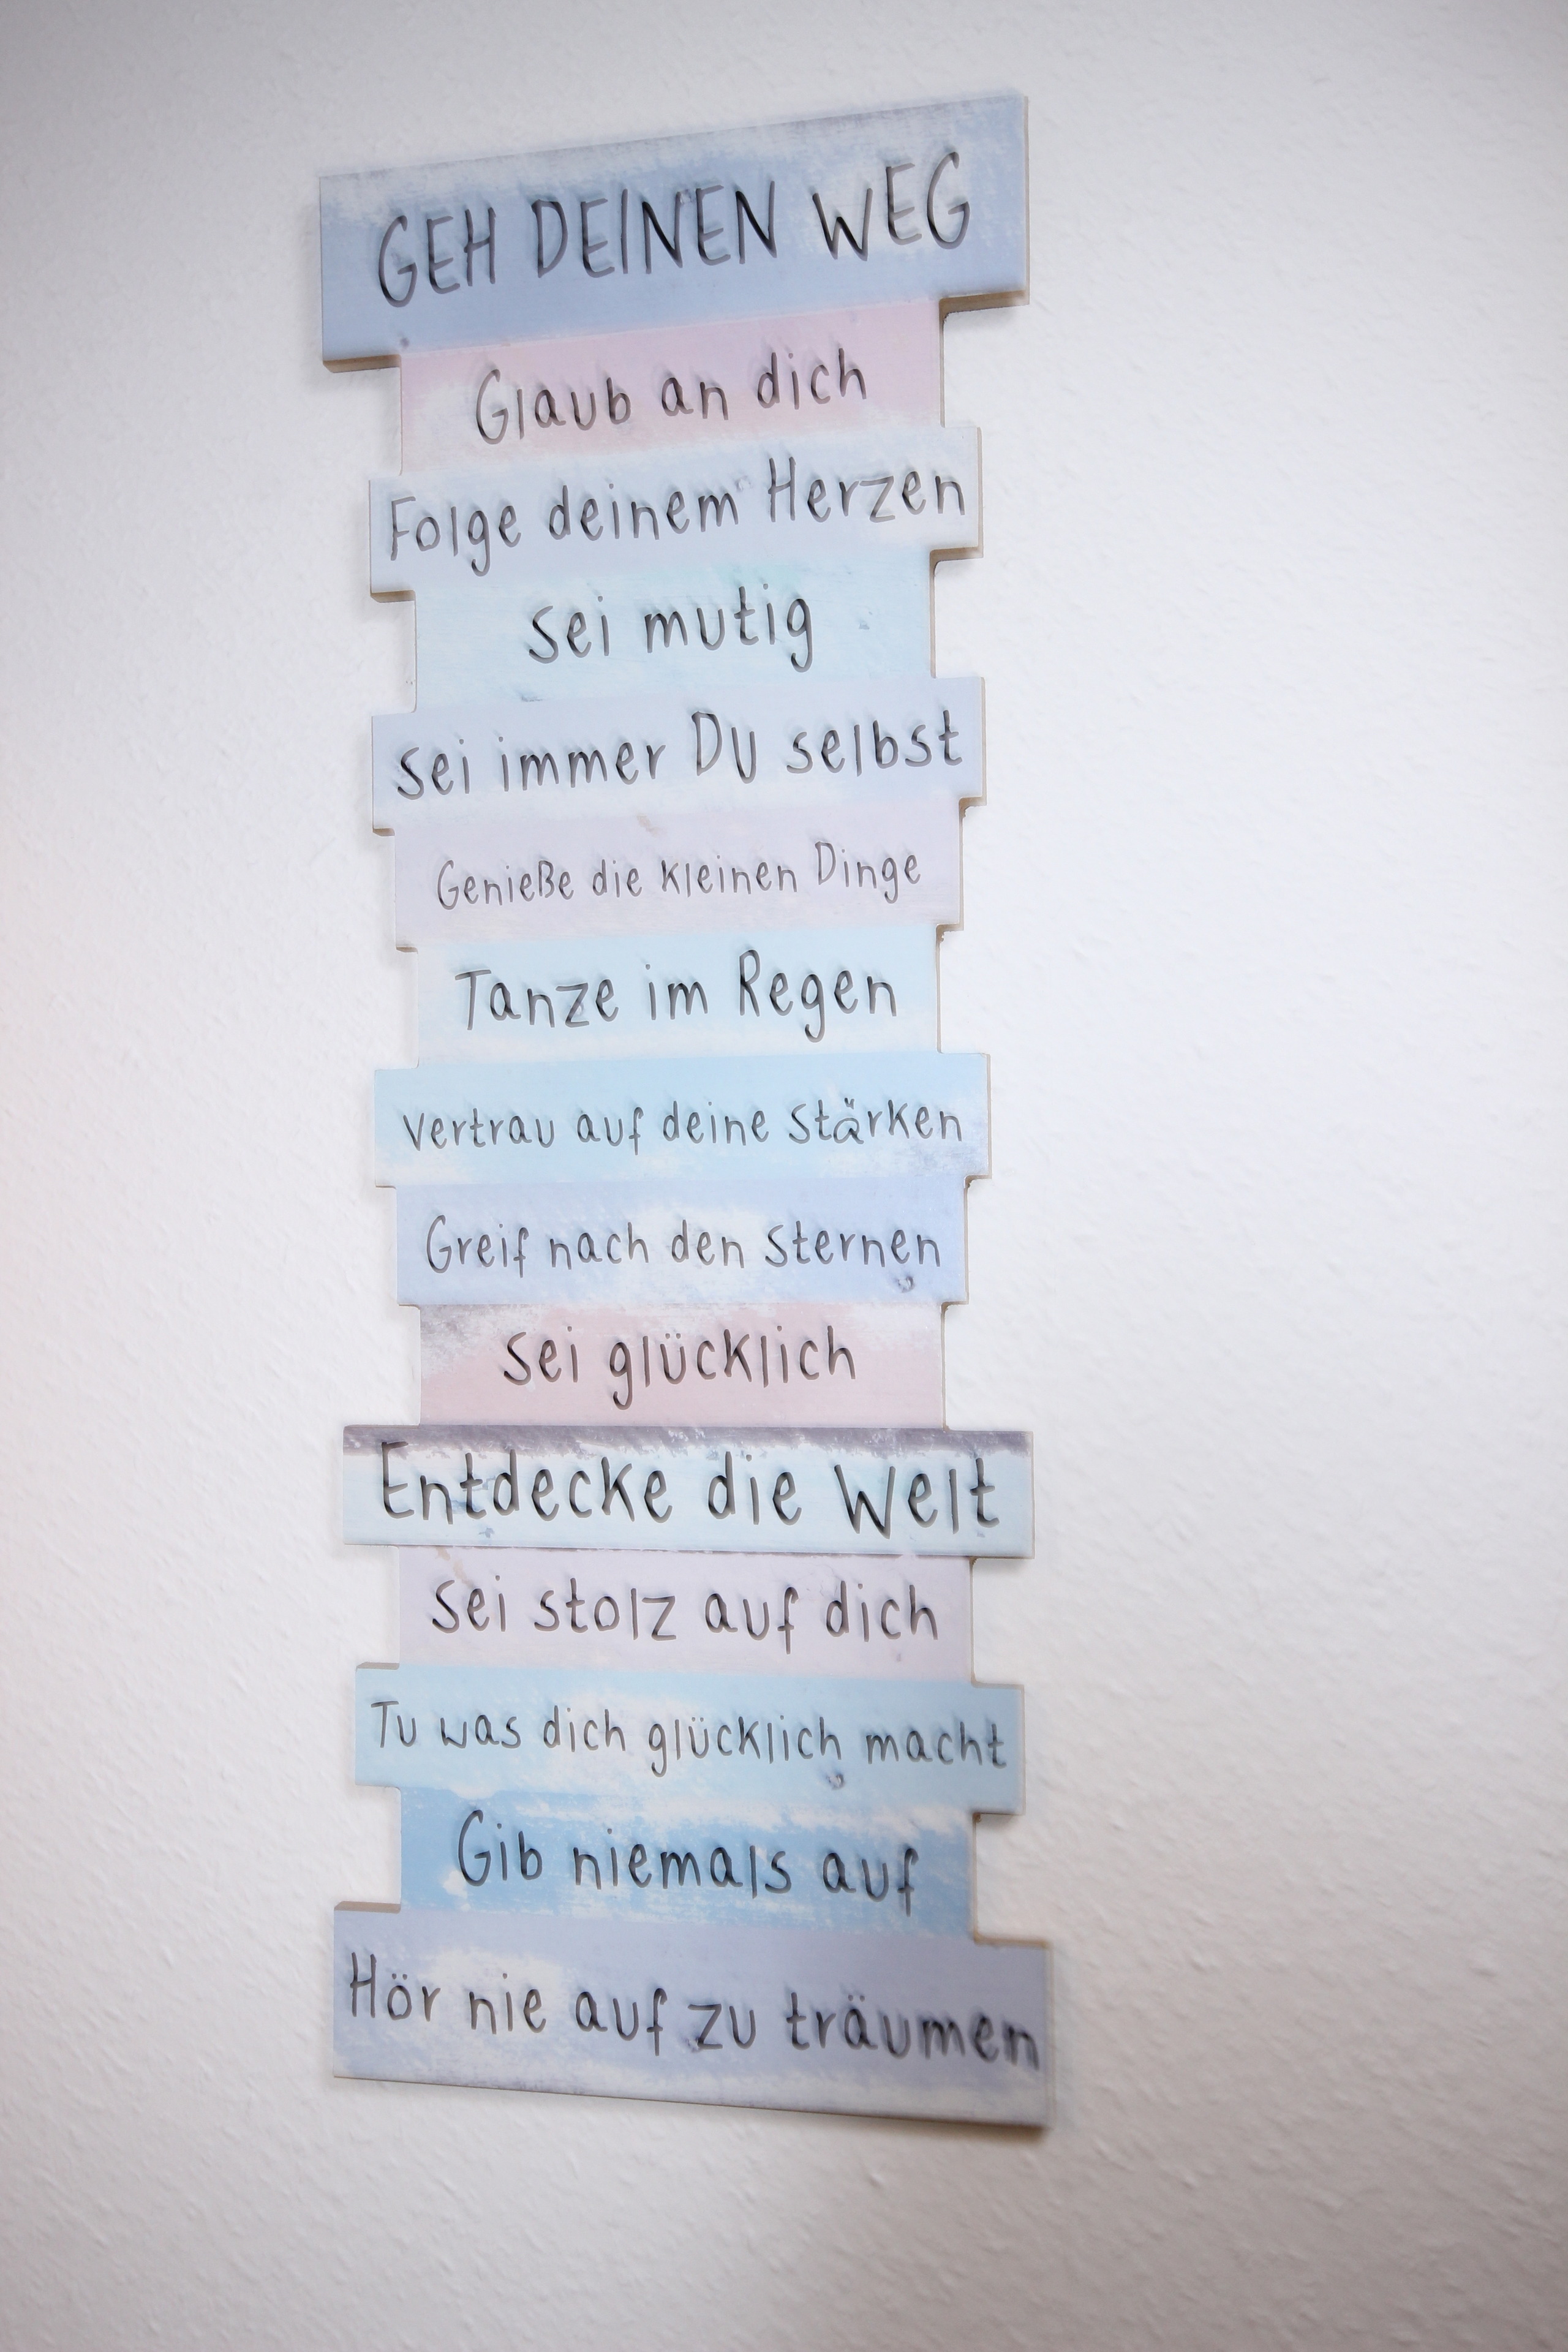 GEH DEINEN WEG
Glaub an dich
Folge deinem Herzen
sei mutig
sei immer Du selbst
Genieße die kleinen Dinge
Tanze im Regen
vertrau auf deine stärken
Greif nach den sternen
sei glücklich
Entdecke die Welt
sei stolz auf dich
Tu was dich glücklich macht
Gib niemals auf
Hör nie auf zu träumen